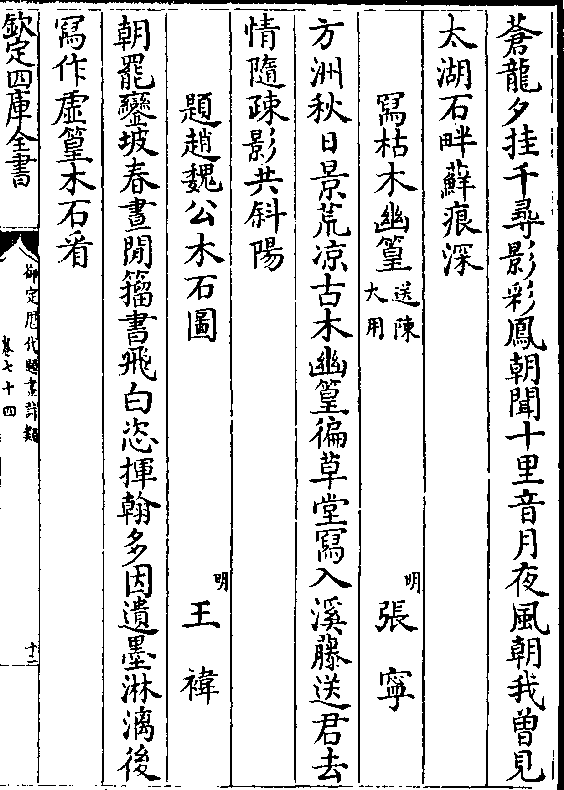 蒼龍夕挂千尋影彩鳳朝聞十里音月夜風朝我曾見
太湖石畔蘚痕深
寫枯木幽篁送陳大用 明 張寧
方洲秋日景荒凉古木幽篁徧草堂寫入溪藤送君去
情隨疎影共斜陽
題趙魏公木石圖 明 王褘
朝罷鑾坡春晝閒籀書飛白恣揮翰多因遺墨淋漓後
寫作虛篁木石看
欽定四庫全書
御定歴代題畫詩類
卷七十四
十二